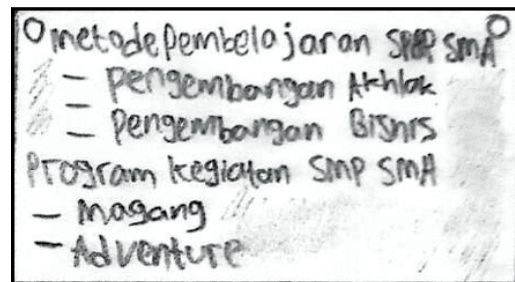 metode pembelajaran SMP SMA
- Pengembangan Akhlak
- Pengembangan Bisnis
Program kegiatan SMP SMA
- Magang
- Adventure